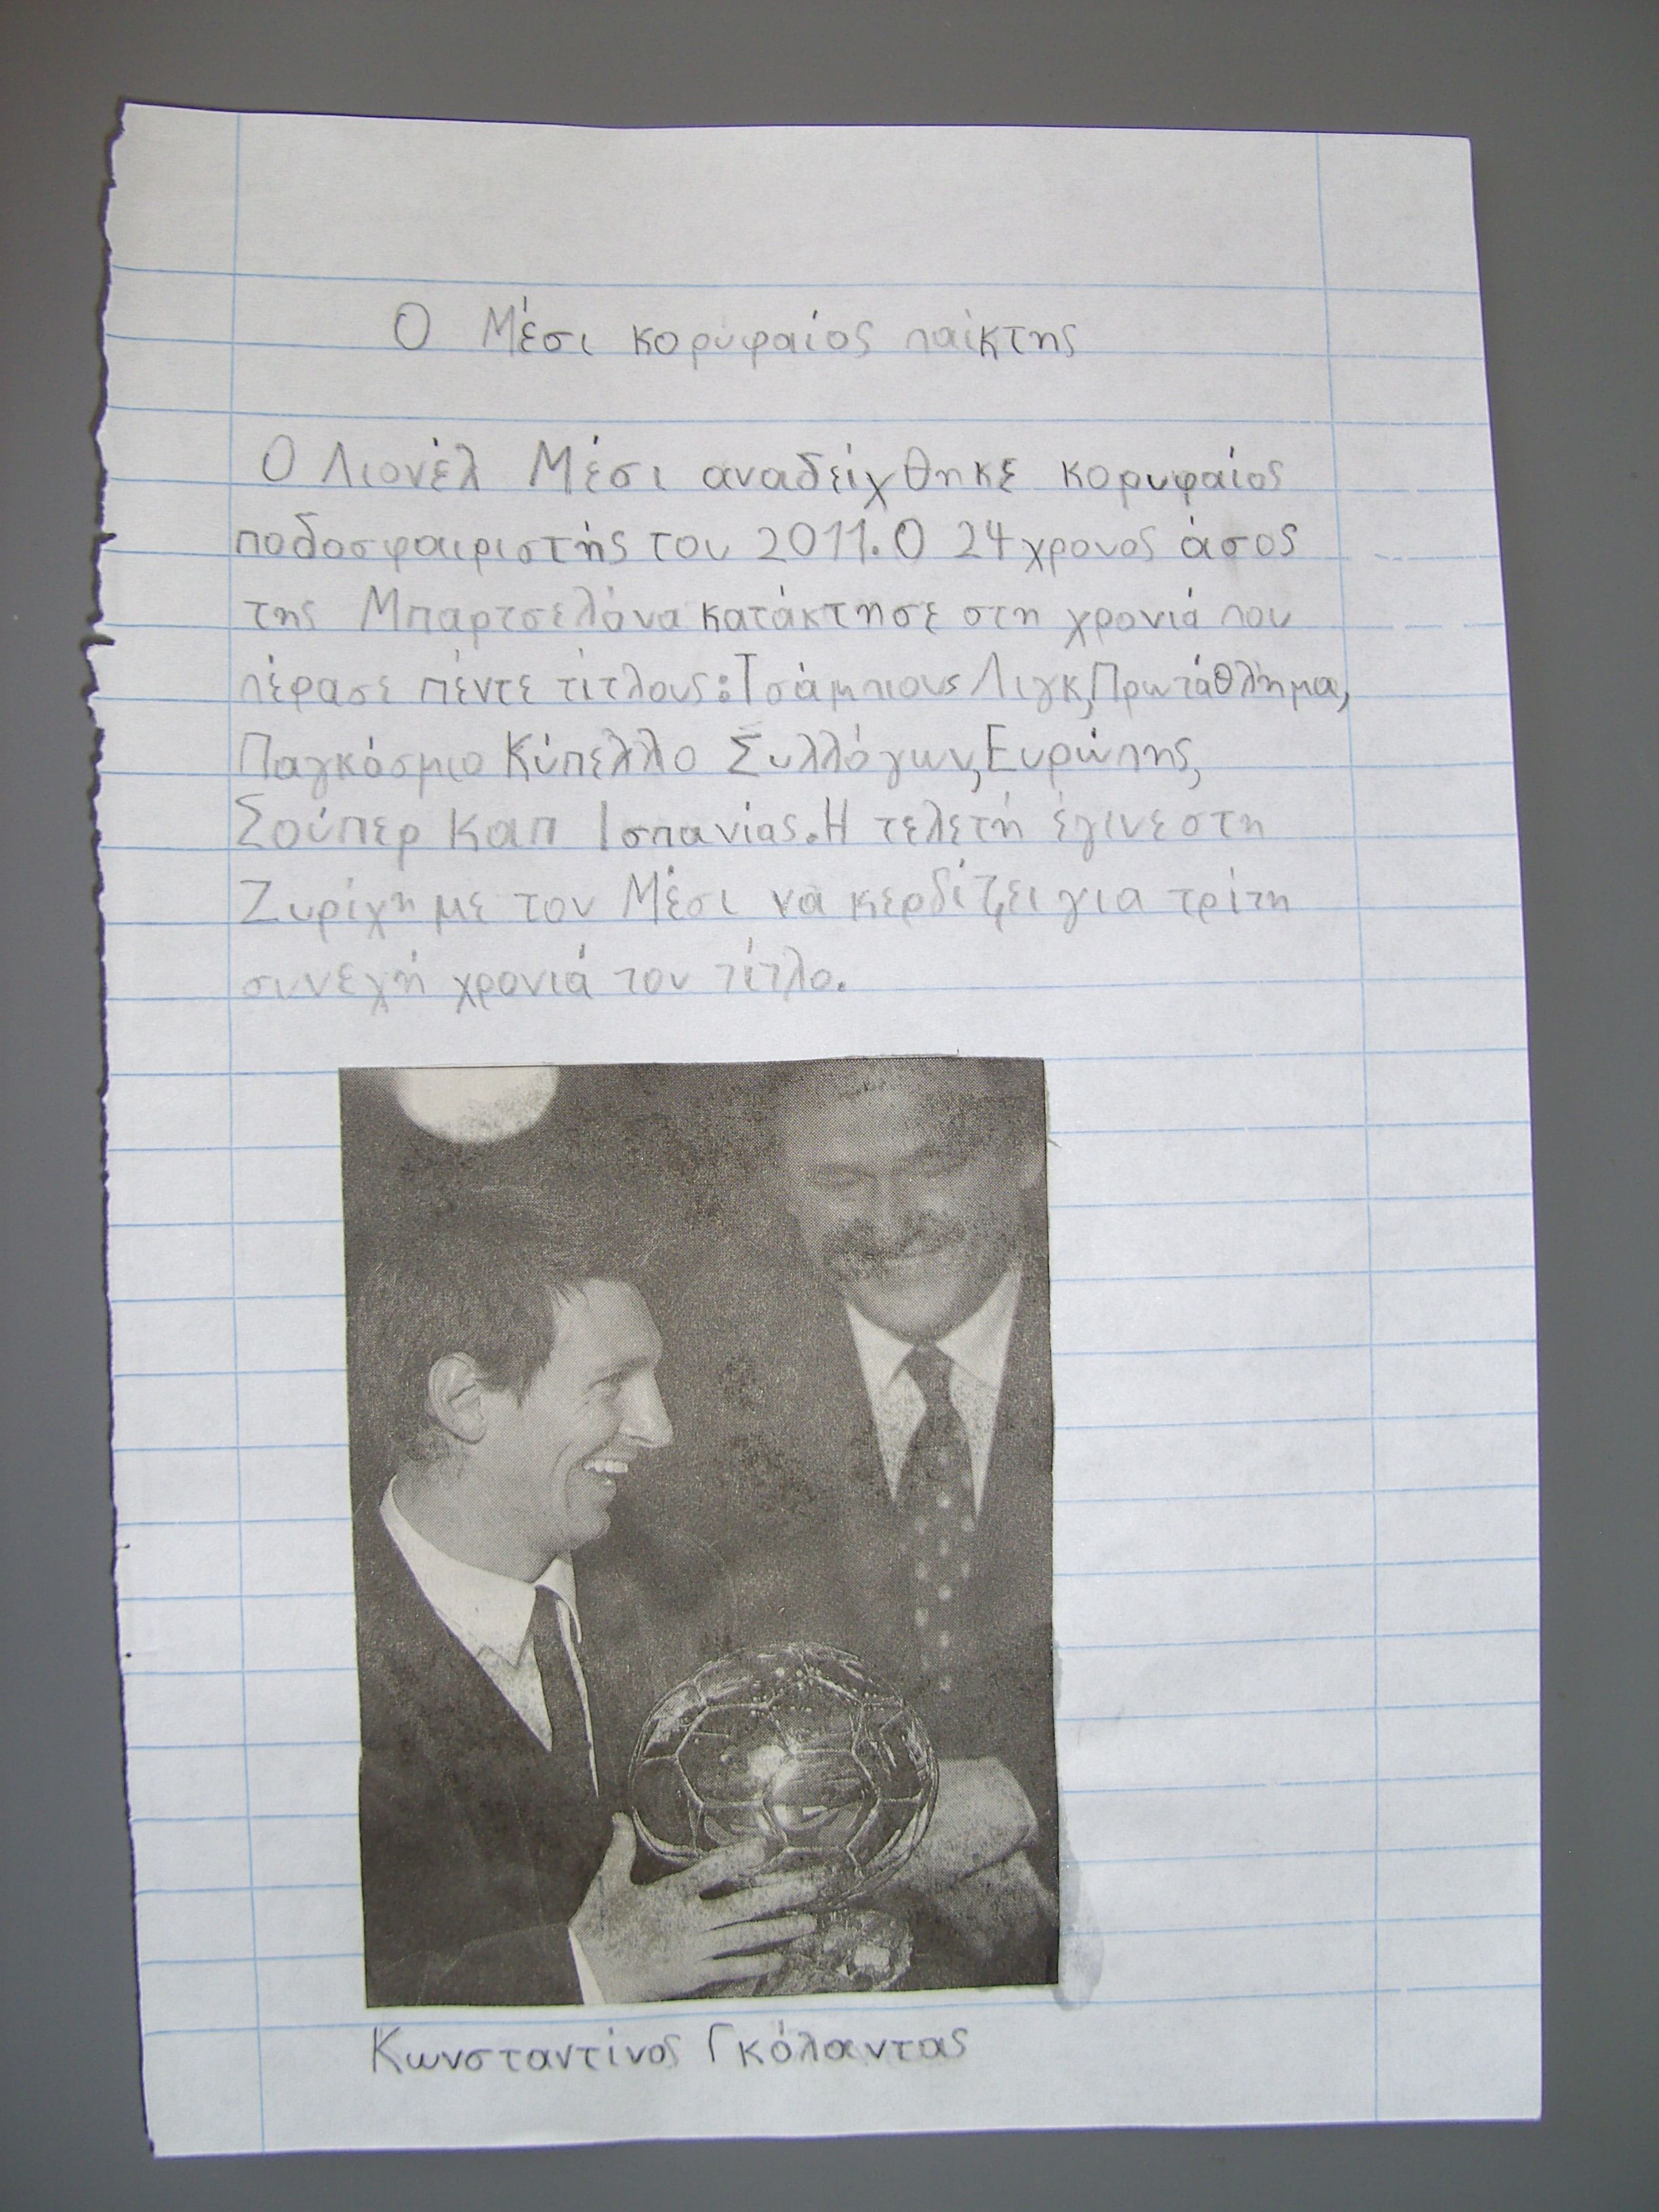 Ο Μέσι κορυφαίος παίκτης
Ο Λιονέλ Μέσι αναδείχθηκε κορυφαίος
ποδοσφαιριστής του 2011. Ο 24χρονος άσος
της Μπαρτσελόνα κατάκτησε στη χρονιά που
πέρασε πέντε τίτλους: Τσάμπιονς Λιγκ, Πρωτάθλημα,
Παγκόσμιο Κύπελλο Συλλόγων, Ευρώπης,
Σούπερ Καπ Ισπανίας. Η τελετή έγινε στη
Ζυρίχη με τον Μέσι να κερδίζει για τρίτη
συνεχή χρονιά τον τίτλο.
Κωνσταντίνος Γκόλαντας